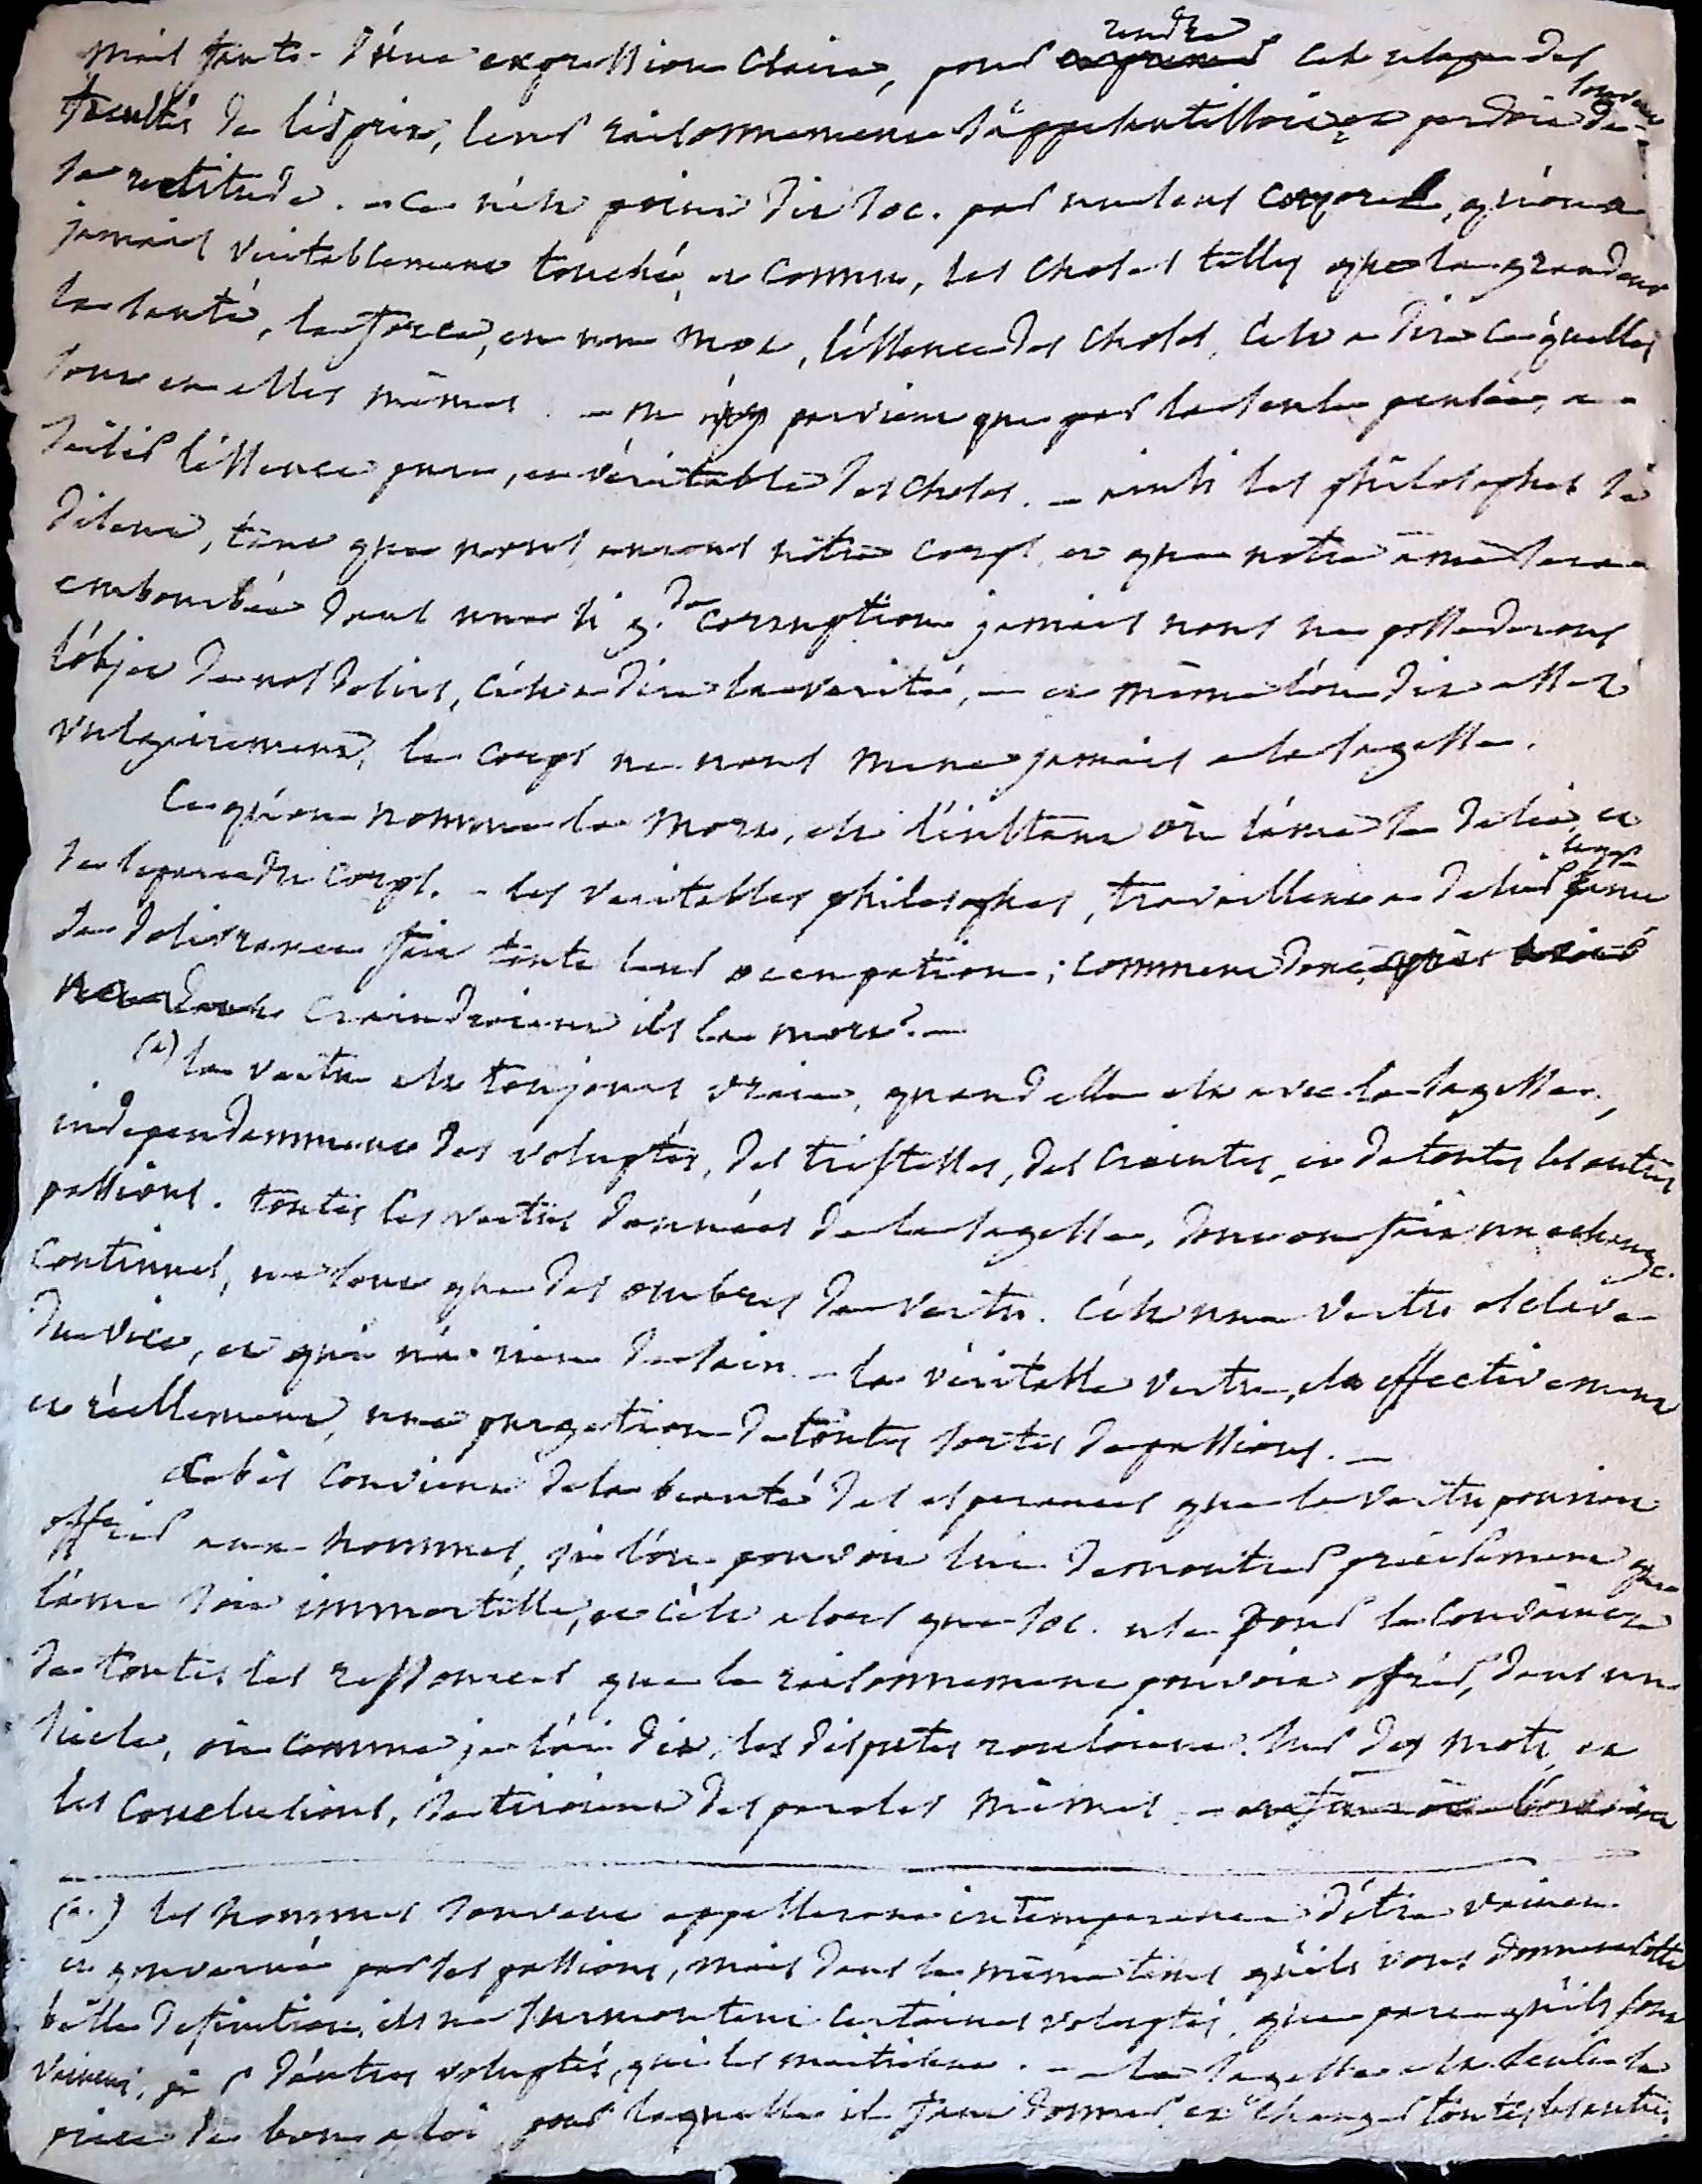 mais faute d'une expression claire, pour rendre cet elage des
facultés de l'esprit, leur raisonnement s'appesantissoit et perdoit souvent de
sa rectitude. - ce n'est point dit soc. par un sens corporel, qu'on a
jamais veritablement touché, et connu, les choses telles que la grandeur
la santé, la force, en un mot, l'éssence des choses, c'est a dire ce qu'elles
sont en elles mêmes. - on n'y parvient que par la seule pensée, a
saisir l'éssence pure, et véritable des choses. - ainsi les philosophes se
disent, tant que nous aurons nôtre corps, et que notre âme sera
embourbée dans une si g.de corruption jamais nous ne possederons
l'objet de nos desirs, c'est a dire la verité, - et même l'on dit assez
vulgairement, le corps ne nous mene jamais a la sagesse.
Ce qu'on nomme la mort, est l'instant où l'ame se delie, et
se separe du corps. - les veritables philosophes, travaillent a delier leur ame
sa delivrance fait toute leur occupation; comment donc
craindroient ils la mort? -
(a) la vertu est toujours vraie, quand elle est avec la sagesse,
independamment des voluptés, des tristesses, des craintes, et de toutes les autres
passions. toutes les vertus dennées de la sagesse, dont on fait un echange
continuel, ne sont que des ombres de vertu. c'est une vertu esclave
du vice, et qui n'a rien de sain. - la véritable vertu, est effectivement
et réellement, une purgation de toutes sortes de passions. -
Cebès convient de la beauté des esperances que la vertu pourroit
offrir aux hommes, si l'on pouvoit lui demontrer précisement que
l'ame soit immortelle, et c'est alors que soc. use pour le convaincre
de toutes les ressources que le raisonnement pouvoit offrir, dans un
siecle, où comme je l'ai dit, les disputes rouloient sur des mots, et
les conclusions, se tiroient des paroles mêmes. -
(a.) les hommes souvent appelleront intemperance d'être vaincu
et gouverné par ses passions, mais dans le même tems qu'ils vous donnent cette
belle definition, ils ne surmontent certaines voluptés, que parce qu'ils sont
vaincus, par d'autres voluptés, qui les maitrisent. - la sagesse est la seule
piece de bon aloi pour laquelle il faut donner, et changer toutes les autres,